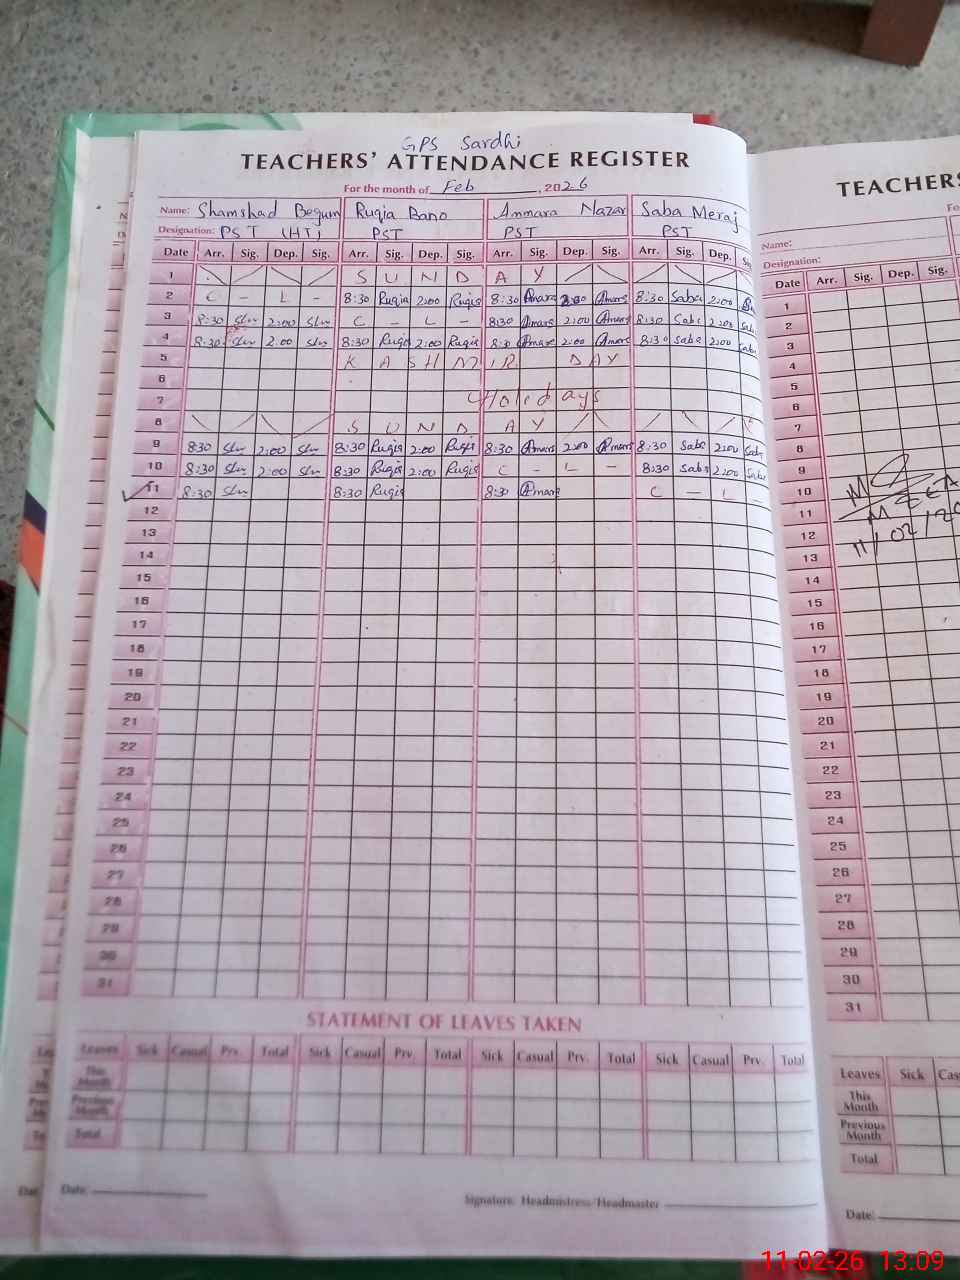 GPS Sardhi
TEACHERS' ATTENDANCE REGISTER
For the month of Feb, 2026
Name: Shamshad Begum Ruqia Bano Ammara Nazar Saba Meraj
Designation: PST (HT) PST PST PST
Date Arr. Sig. Dep. Sig. Arr. Sig. Dep. Sig. Arr. Sig. Dep. Sig. Arr. Sig. Dep.
1 S U N D A Y
2 C - L - 8:30 Ruqia 2:00 Ruqia 8:30 2:00 8:30 Saba 2:00
3 8:30 2:00 C - L - 8:30 2:00 8:30 Saba 2:00
4 8:30 2:00 8:30 Ruqia 2:00 Ruqia 8:30 2:00 8:30 Saba 2:00 Saba
5 K A S H M I R DAY
6
7 Holidays
8 S U N D A Y
9 8:30 2:00 8:30 Ruqia 2:00 Ruqia 8:30 2:00 8:30 Saba 2:00 Saba
10 8:30 2:00 8:30 Ruqia 2:00 Ruqia C - L - 8:30 Saba 2:00 Saba
11 8:30 8:30 Ruqia 8:30 C - L
12
13
14
15
16
17
18
19
20
21
22
23
24
25
26
27
28
29
30
31
STATEMENT OF LEAVES TAKEN
Leaves Sick Casual Prv. Total Sick Casual Prv. Total Sick Casual Prv. Total Sick Casual Prv. Total
This Month
Previous Month
Total
Date:
Signature: Headmistress/Headmaster
TEACHERS
Name:
Designation:
Date Arr. Sig. Dep. Sig.
1
2
3
4
5
6
7
8
9
10
11
12
13
14
15
16
17
18
19
20
21
22
23
24
25
26
27
28
29
30
31
11/02/20
Leaves Sick
This Month
Previous Month
Total
Date:
11-02-26 13:09